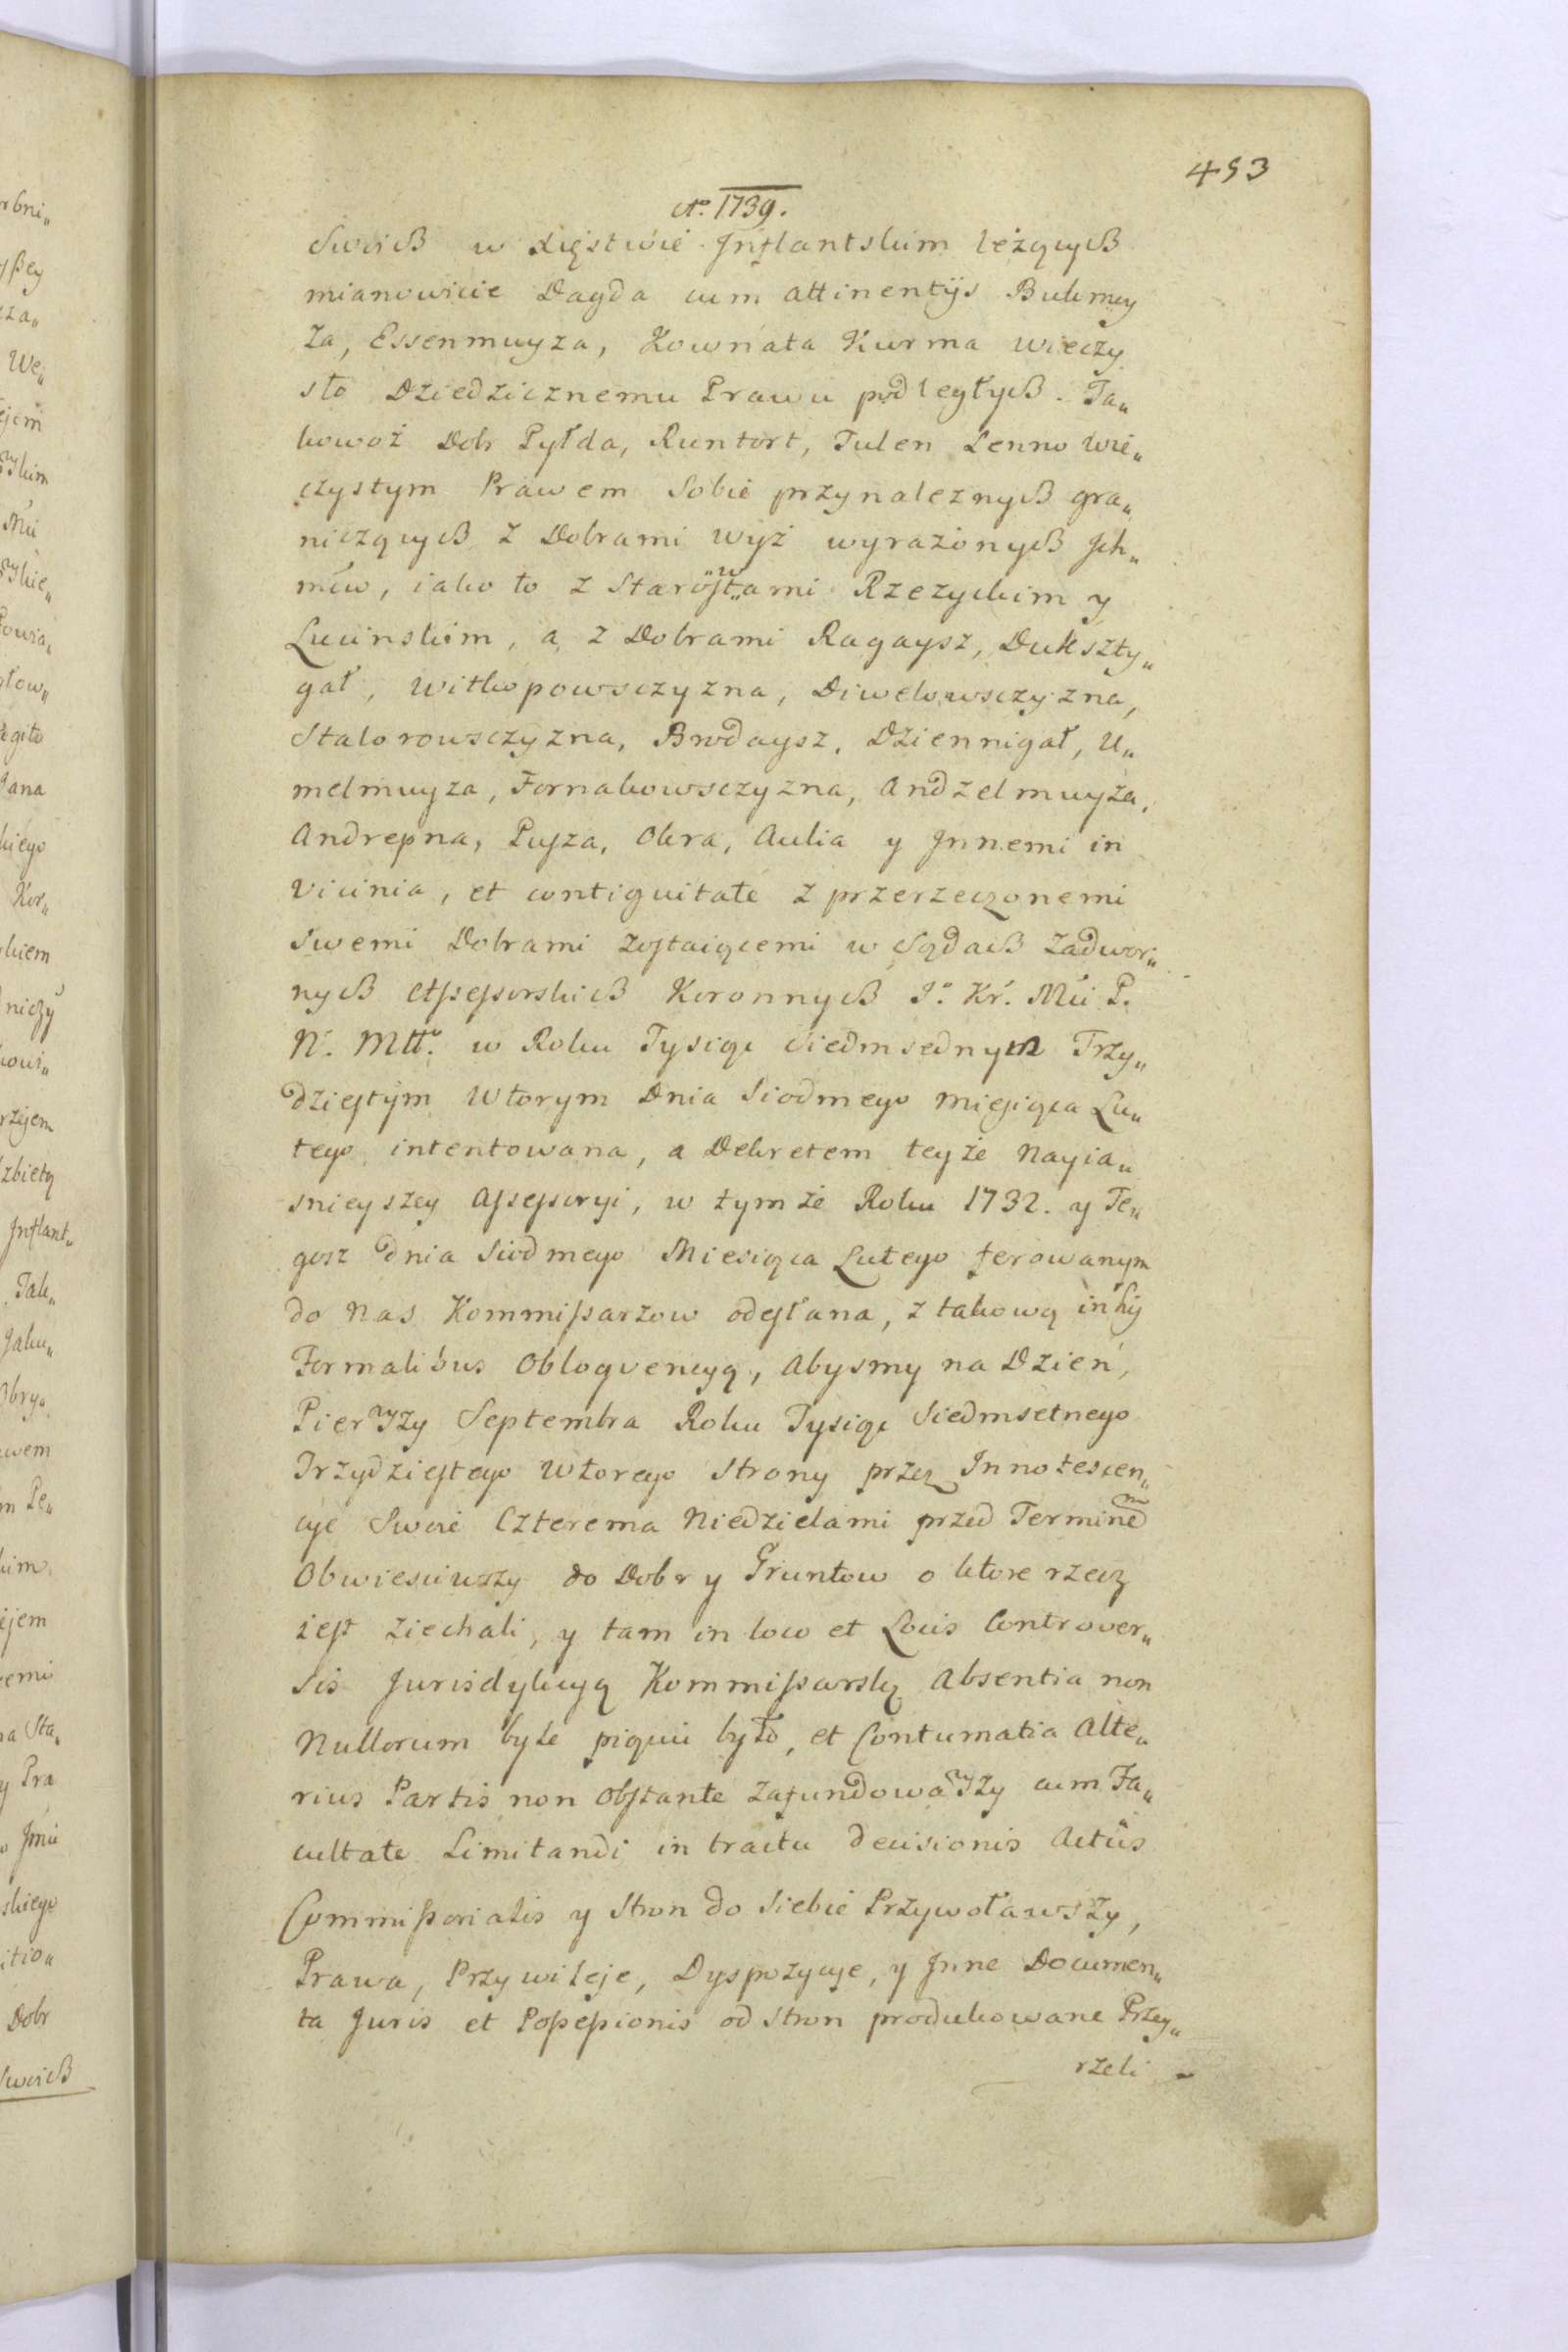 453
Ao. 1739.
Swoich w Xięstwie Inflantskim leżących
mianowicie Dagda cum attinentijs Bukmuy
za, Essenmuyza, Kownata Kurma wieczy
sto Dziedzicznemu Prawu podległych. Ta„
kowoż Dobr Pyłda, Runtort, Tulen Lenno wie„
czystym Prawem Sobie przynaleznych gra„
niczących z Dobrami wyż wyrażonych Ich„
mćiw, iako to z Starostwami Rzezyckim y
Lucinskim, a z Dobrami Ragaysz, Dukszty„
gał, Witkopowsczyzna, Diwelowsczyzna,
Stalorowsczyzna, Brodaysz, Dziennigał, U„
melmuyza, Fornakowsczyzna, Andzelmuyża,
Andrepna, Puysza, Okra, Aulia y Innemi in
vicinia, et contiguitate z przerzeczonemi
swemi Dobrami zostaiącemi w Sądach Zadwor„
nych Assessorskich Koronnych Jo. Kr. Mći P.
N. Mtt. w Roku Tysiąc Siedmsednym Trzy„
dziestym Wtorym Dnia Siodmego Miesiąca Lu„
tego intentowana, a Dekretem teyże Nayia„
snieyszey Assessoryi, w tymże Roku 1732. y Te„
gosz dnia Siodmego Miesiąca Lutego ferowanym
do nas Kommissarzow odesłana, z takową in his
Formalibus Obloqvencyą, Abysmy na Dzień,
Pierwszy Septembra Roku Tysiąc Siedmsetnego
Trzydziestego Wtorego Strony przez Innotescen„
cye Swoie Czterema Niedzielami przed Terminem
Obwiesciwszy do Dobr y Gruntow o ktore rzecz
iest ziechali, y tam in loco et Locis Controver„
sis Jurisdykcyą Kommissarską Absentia non
Nullorum byle piąciu było, et Contumatia Alte„
rius Partis non Obstante zafundowawszy cum Fa„
cultate Limitandi in tractu decisionis Actûs
Commissorialis y Stron do Siebie Przywoławszy,
Prawa, Przywileje, Dyspozycye, y Inne Documen„
ta Juris et Possessionis od Stron produkowane Przey„
rzeli